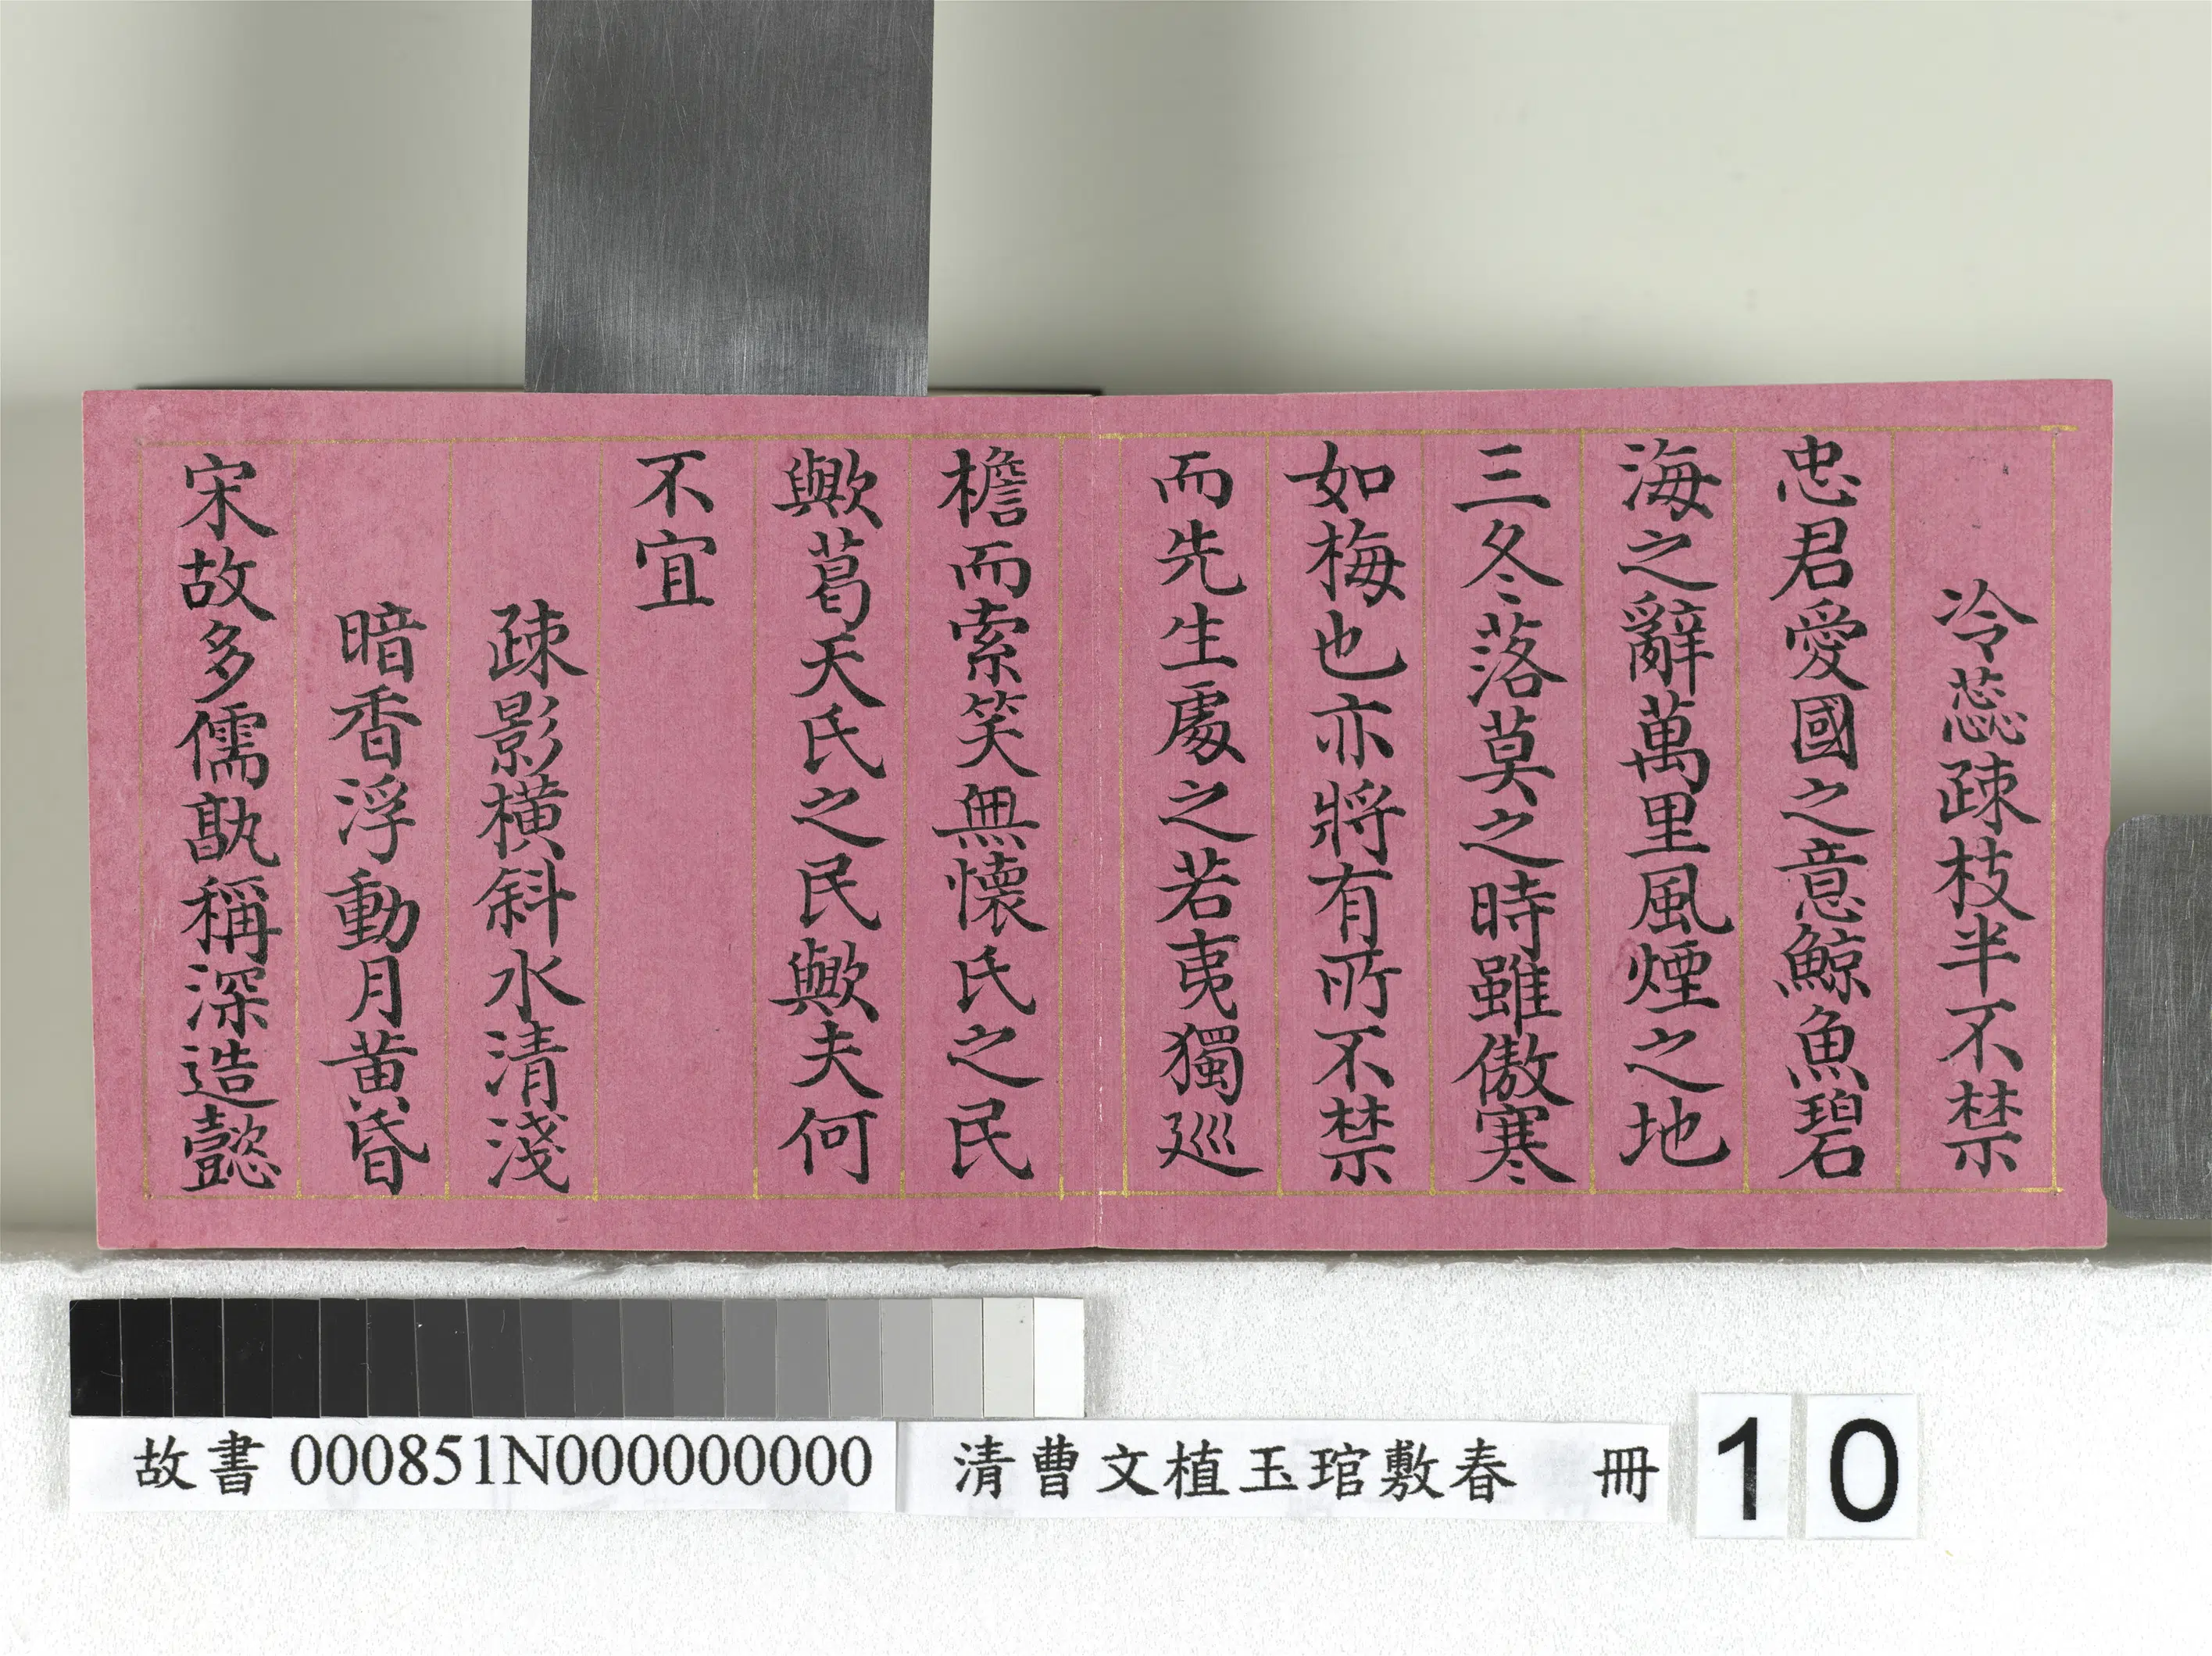 冷蕊疎枝半不禁
忠君愛國之意鯨魚碧
海之辭萬里風煙之地
三冬落莫之時雖傲寒
如梅也亦將有所不禁
而先生處之若夷獨巡
檐而索笑無懷氏之民
歟葛天氏之民歟夫何
不宜
疎影橫斜水清淺
暗香浮動月黃昏
宋故多儒孰稱深造懿
故書 000851N000000000
清曹文植玉琯敷春 冊
10